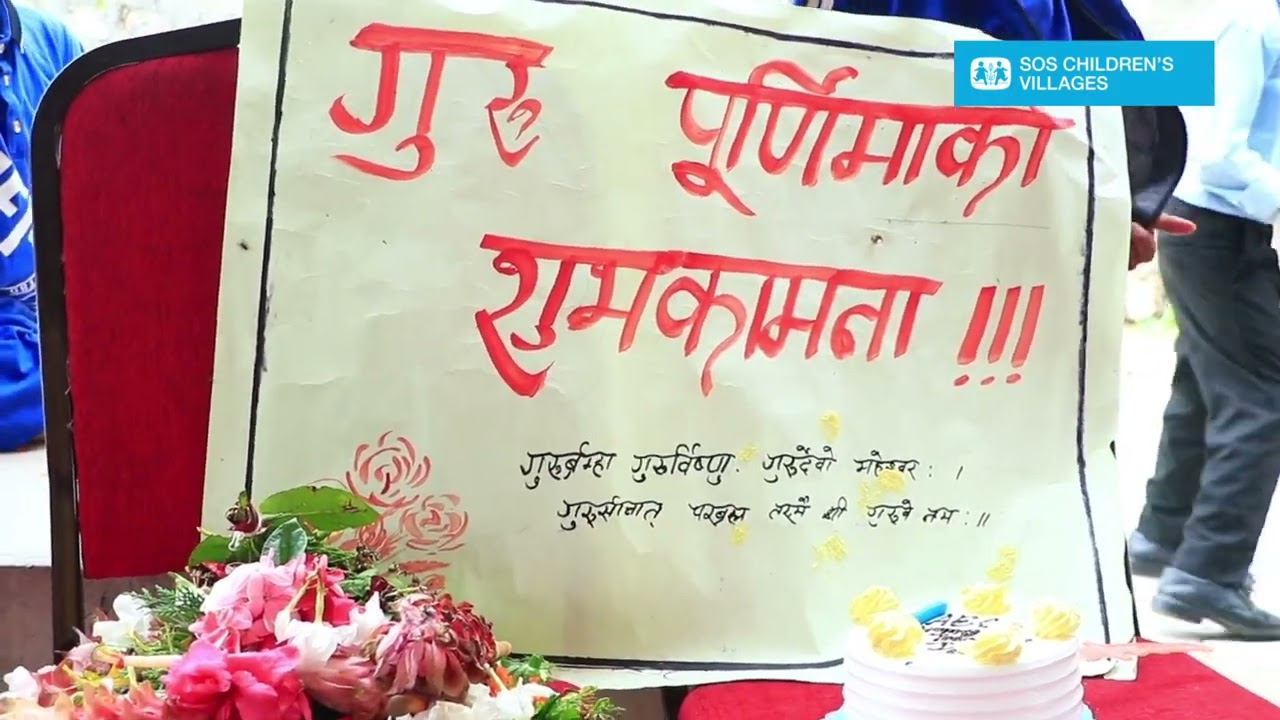 SOS CHILDREN'S
VILLAGES
गुरु पूर्णिमाको
शुभकामना !!!
गुरुर्ब्रम्हा गुरुर्विष्णु: गुरुर्देवो महेश्वर: ।
परब्रह्म तस्मै श्री गुरुवे नम: ॥